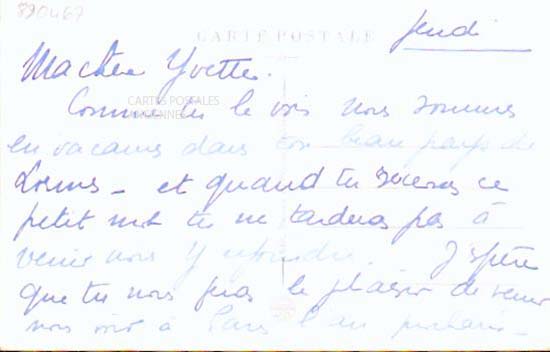 890467
CARTE POSTALE
Jeudi
Ma chère Yvette.
CARTES POSTALES
ANCIENNES
Comme tu le vois nous sommes
en vacances dans ton beau pays de
et quand tu recevras ce
petit mot tu ne tarderas pas à
venir nous y rejoindre. J'espère
que tu nous feras le plaisir de venir
nous voir à Paris l'an prochain -